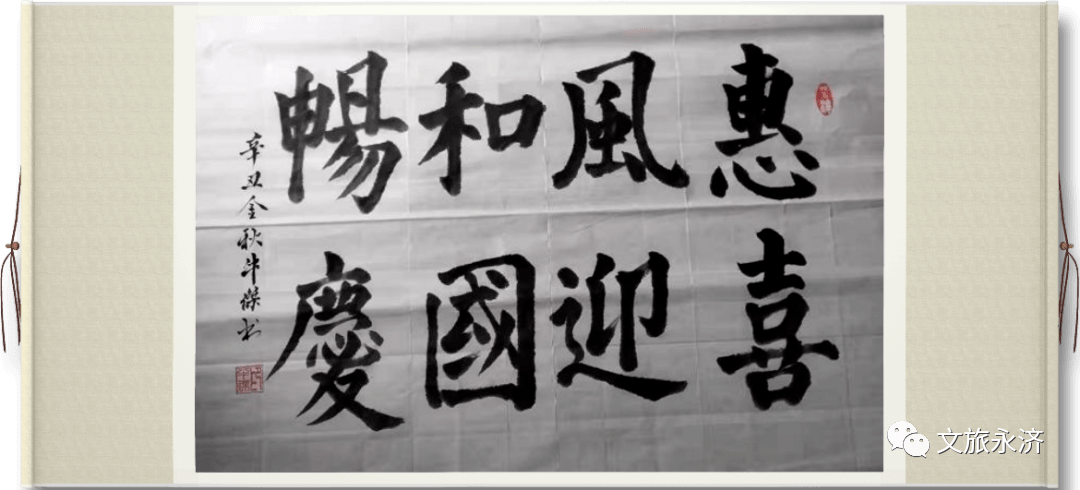 惠風和暢
喜迎國慶
辛丑金秋牛傑书
文旅永济